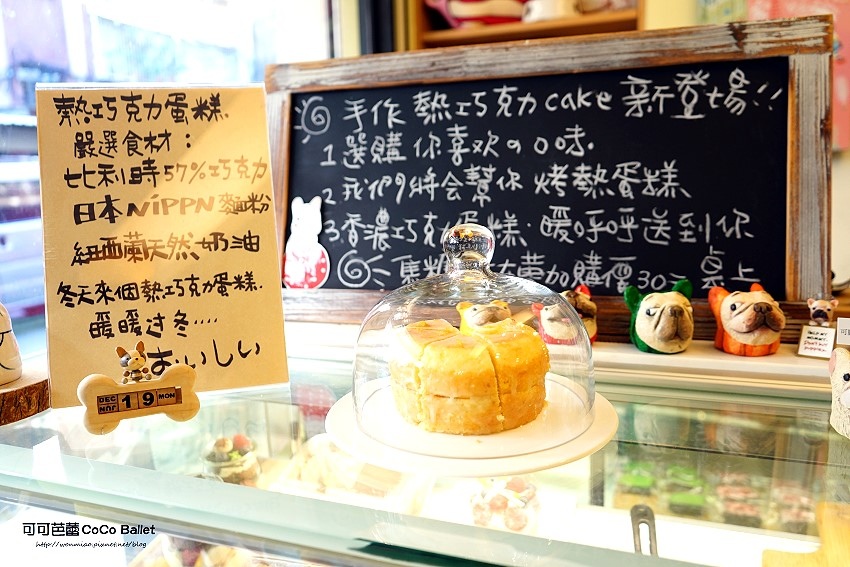 熱巧克力蛋糕.
嚴選食材：
比利時57%巧克力
日本NiPPN麵粉
紐西蘭天然奶油
冬天來個熱巧克力蛋糕.
暖暖过冬....
おいしい
DEC
NUL
19
MON
手作 熱巧克力cake 新登場!!
1.選購你喜欢の口味.
2.我們將会幫你 烤熱蛋糕、
3.香濃巧克力蛋糕.暖呼呼送到你
加購價30元 桌上
可可芭蕾CoCo Ballet
http://wonmiao.pixnet.net/blog